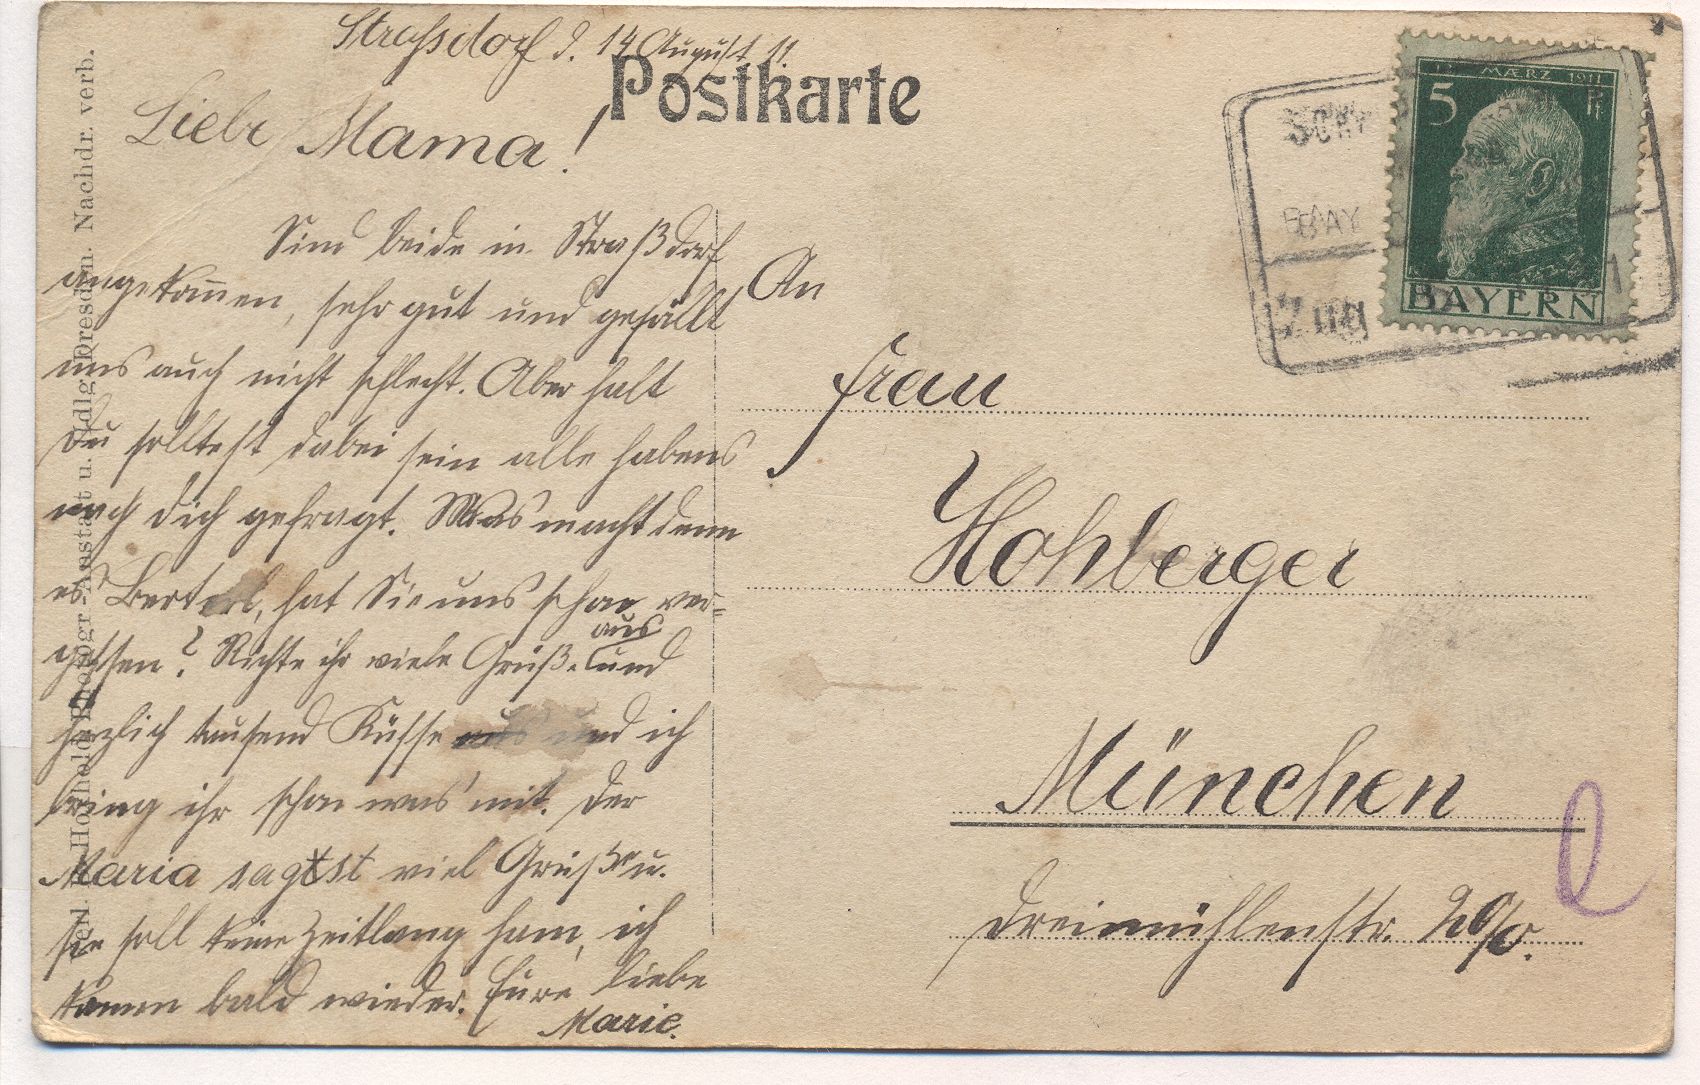 Strassdorf d. 14 August 11.
Postkarte
Liebe Mama!
Sind beide in Straßdorf
angekommen, sehr gut und gefällt
uns auch nicht schlecht. Aber halt
Du solltest dabei sein alle habens
nach dich gefragt. Was macht denn
es Berterl, hat Sie uns schon ver-
gessen? Richte ihr viele Grüße aus und
herzlich tausend Küsse und ich
bring ihr schon was mit. Der
Maria sagst viel Grüße u.
sie soll keine Zeitlang ham, ich
komm bald wieder. Eure liebe
Marie.
An
Frau
Hohberger
München
Dreimühlenstr.
MÆRZ 1911
5 Pf
BAYERN
BAY
Zug
Nachdr. verb.